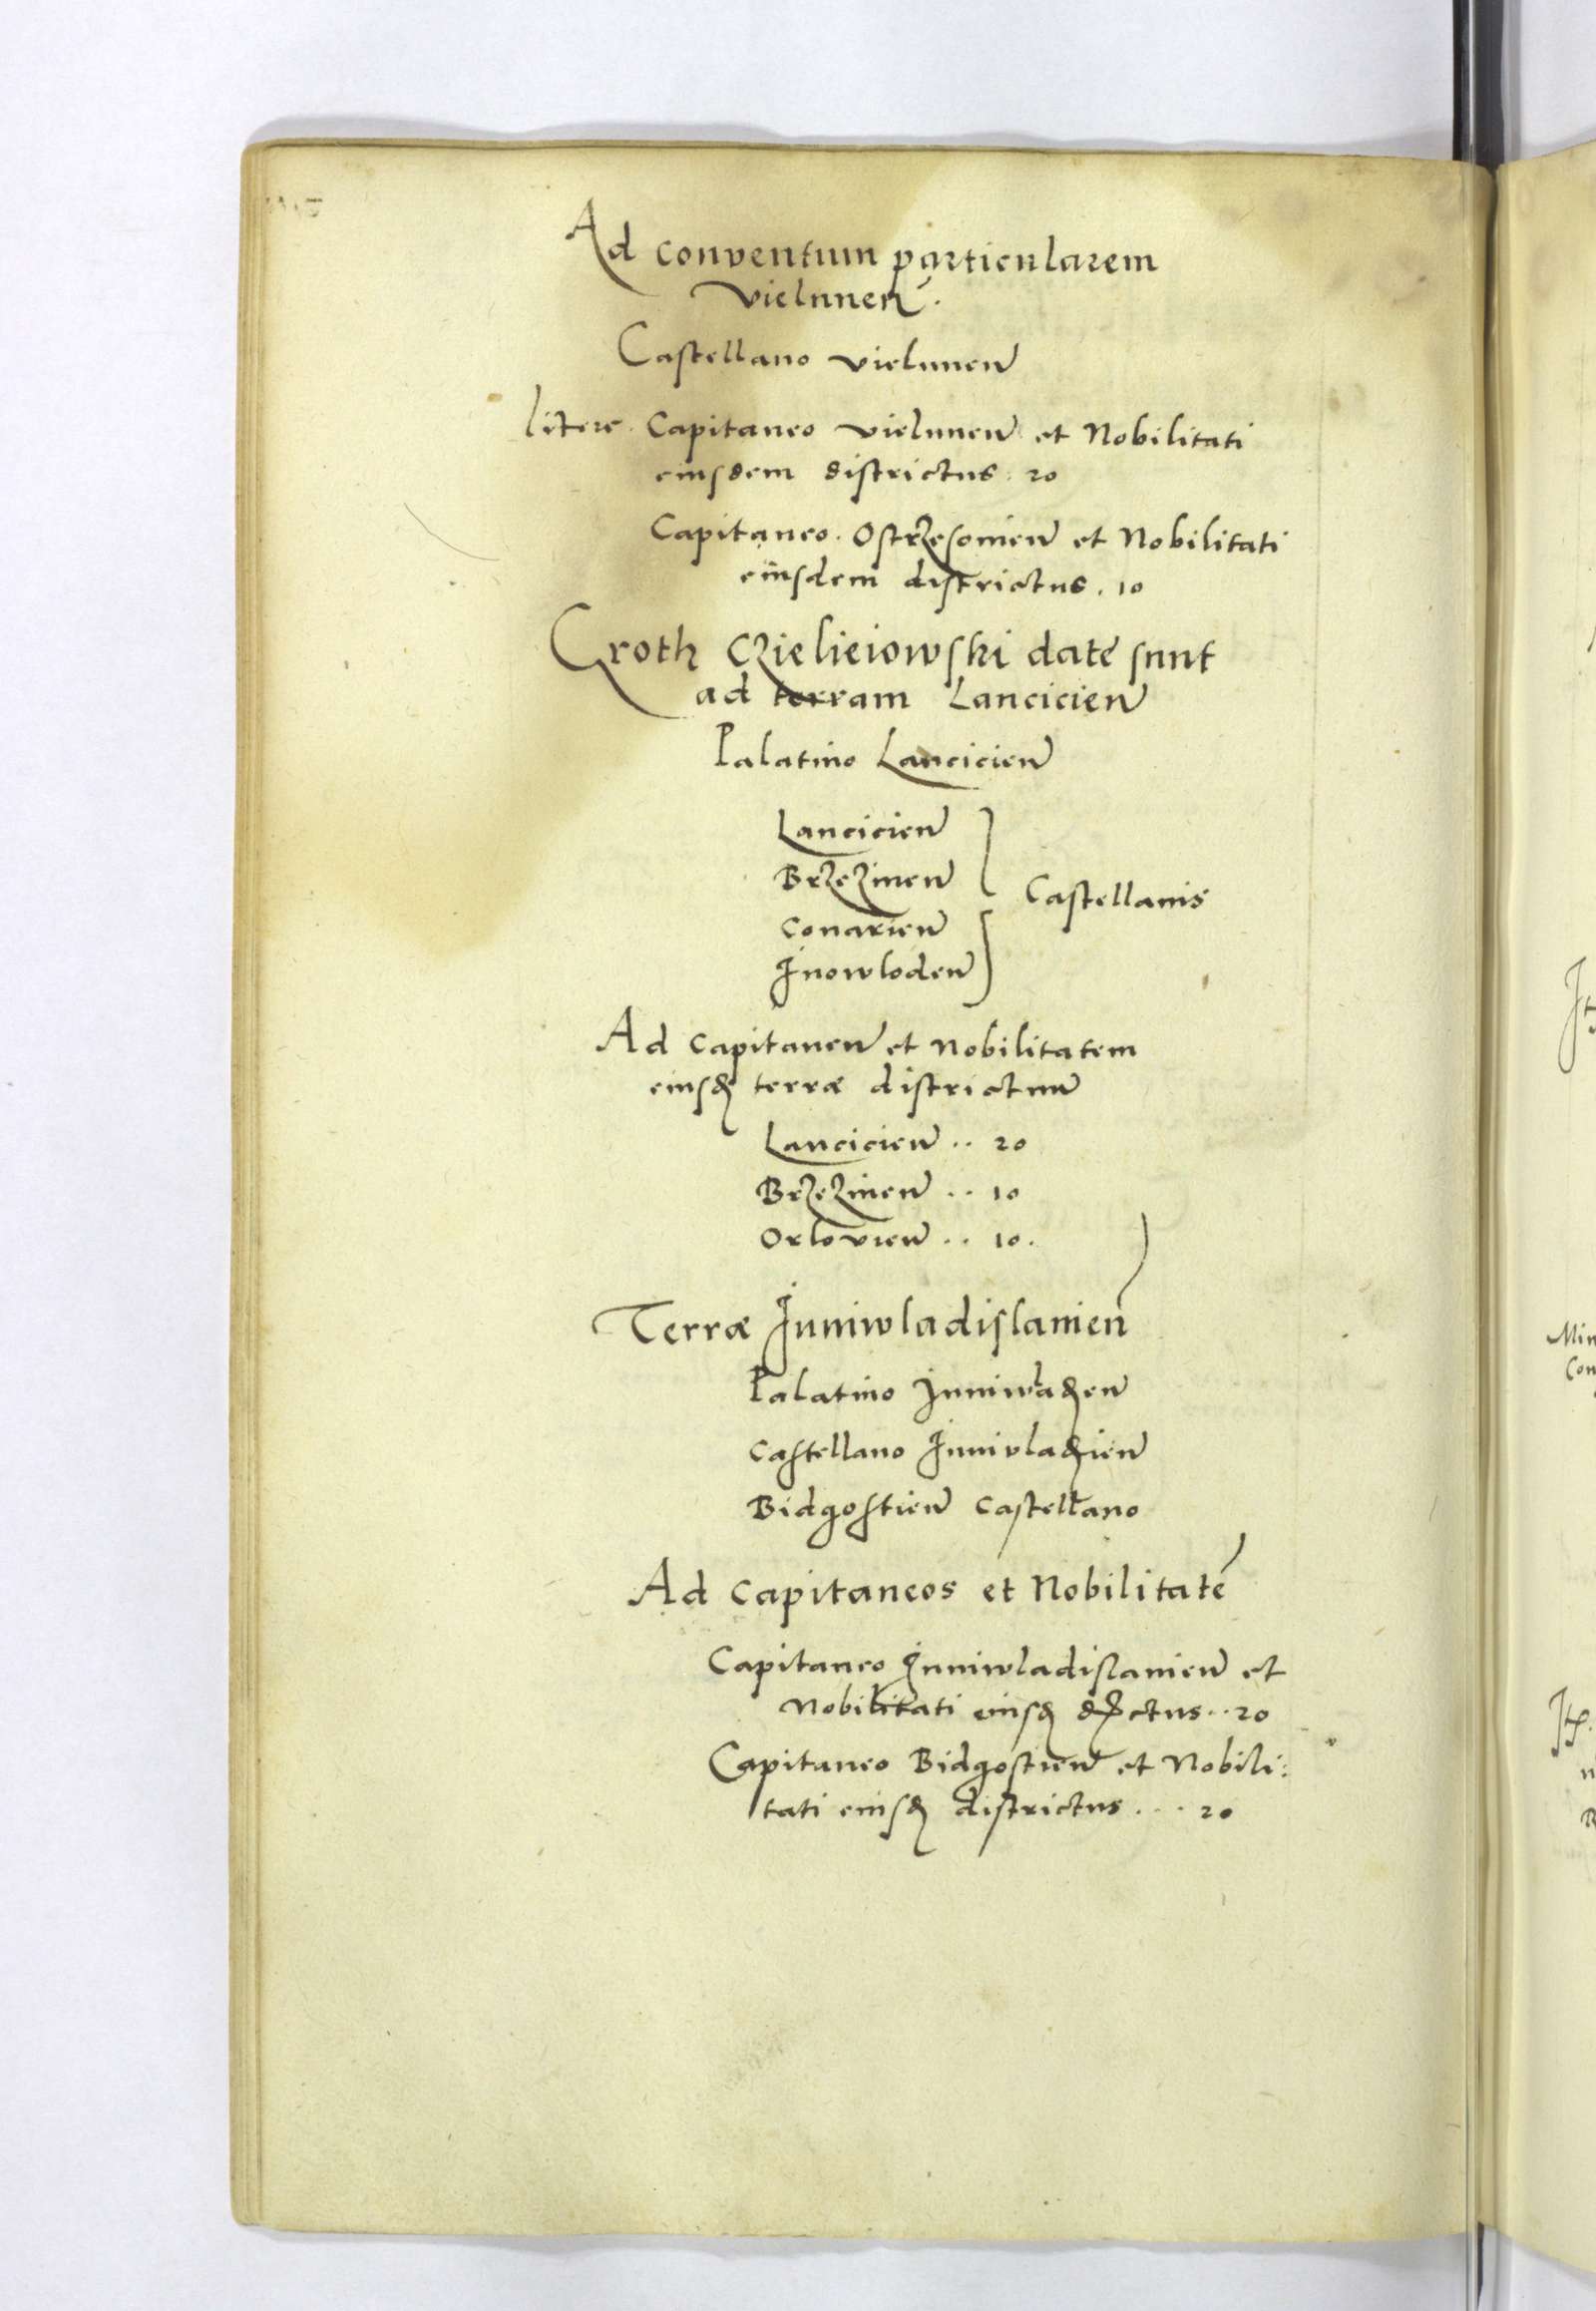 Ad conventum particularem
vielunen.
Castellano vielunen
litere Capitaneo vielunen et Nobilitati
eiusdem districtus. 20
Capitaneo. Ostrzesonien et Nobilitati
eiusdem districtus. 10
Croth Czielieiowski date sunt
ad terram Lancicien
Palatino Lancicien
Lancicien
Brzezinen
Castellanis
Conarien
Inowloden
Ad capitaneu et nobilitatem
eiusd terræ districtuu
Lancicien .. 20
Brzezinen .. 10
Orlovien .. 10.
Terræ Iuniwladislauien
Palatino Iuniwladen
Castellano Iuniwladien
Bidgostien Castellano
Ad Capitaneos et Nobilitatē
Capitaneo Iuniwladislauien et
Nobilitati eiusd dictus .. 20
Capitaneo Bidgostien et Nobili:
tati eiusd districtus ... 20